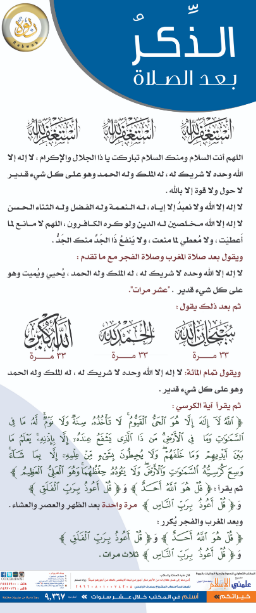 الذِّكرُ
بعد الصلاة
أستغفر الله أستغفر الله أستغفر الله
اللهم أنت السلام ومنك السلام تباركت يا ذا الجلال والإكرام ، لا إله إلا
الله وحده لا شريك له ، له الملك وله الحمد وهو على كل شيء قدير
لا حول ولا قوة إلا بالله .
لا إله إلا الله ولا نعبدُ إلا إياه ، له النعمة وله الفضل وله الثناء الحسن
لا إله إلا الله مخلصين له الدين ولو كره الكافرون ، اللهم لا مانع لما
أعطيْتَ ، ولا مُعطي لما منعت ، ولا يَنفعُ ذا الجَدِّ منك الجدُّ .
ويقول بعد صلاة المغرب وصلاة الفجر مع ما تقدم :
لا إله إلا الله وحده لا شريك له ، له الملك وله الحمد ، يُحيي ويُميت وهو
على كل شيء قدير . "عشر مرات".
ثم بعد ذلك يقول :
سبحان الله الحمد لله الله أكبر
٣٣ مرة ٣٣ مرة ٣٣ مرة
ويقول تمام المائة: لا إله إلا الله وحده لا شريك له ، له الملك وله الحمد
وهو على كل شيء قدير .
ثم يقرأ آية الكرسي :
﴿ ٱللَّهُ لَآ إِلَٰهَ إِلَّا هُوَ ٱلْحَىُّ ٱلْقَيُّومُ لَا تَأْخُذُهُۥ سِنَةٌ وَلَا نَوْمٌ لَّهُۥ مَا فِى
ٱلسَّمَٰوَٰتِ وَمَا فِى ٱلْأَرْضِ مَن ذَا ٱلَّذِى يَشْفَعُ عِندَهُۥٓ إِلَّا بِإِذْنِهِۦ يَعْلَمُ مَا
بَيْنَ أَيْدِيهِمْ وَمَا خَلْفَهُمْ وَلَا يُحِيطُونَ بِشَىْءٍ مِّنْ عِلْمِهِۦٓ إِلَّا بِمَا شَآءَ
وَسِعَ كُرْسِيُّهُ ٱلسَّمَٰوَٰتِ وَٱلْأَرْضَ وَلَا يَـُٔودُهُۥ حِفْظُهُمَا وَهُوَ ٱلْعَلِىُّ ٱلْعَظِيمُ ﴾
ثم يقرأ : ﴿ قُلْ هُوَ ٱللَّهُ أَحَدٌ ﴾ و ﴿ قُلْ أَعُوذُ بِرَبِّ ٱلْفَلَقِ ﴾
و ﴿ قُلْ أَعُوذُ بِرَبِّ ٱلنَّاسِ ﴾ مرة واحدة بعد الظهر والعصر والعشاء .
وبعد المغرب والفجر يُكرر :
﴿ قُلْ هُوَ ٱللَّهُ أَحَدٌ ﴾ و ﴿ قُلْ أَعُوذُ بِرَبِّ ٱلْفَلَقِ ﴾
و ﴿ قُلْ أَعُوذُ بِرَبِّ ٱلنَّاسِ ﴾ ثلاث مرات .
أسلم في المكتب خلال عشر سنوات